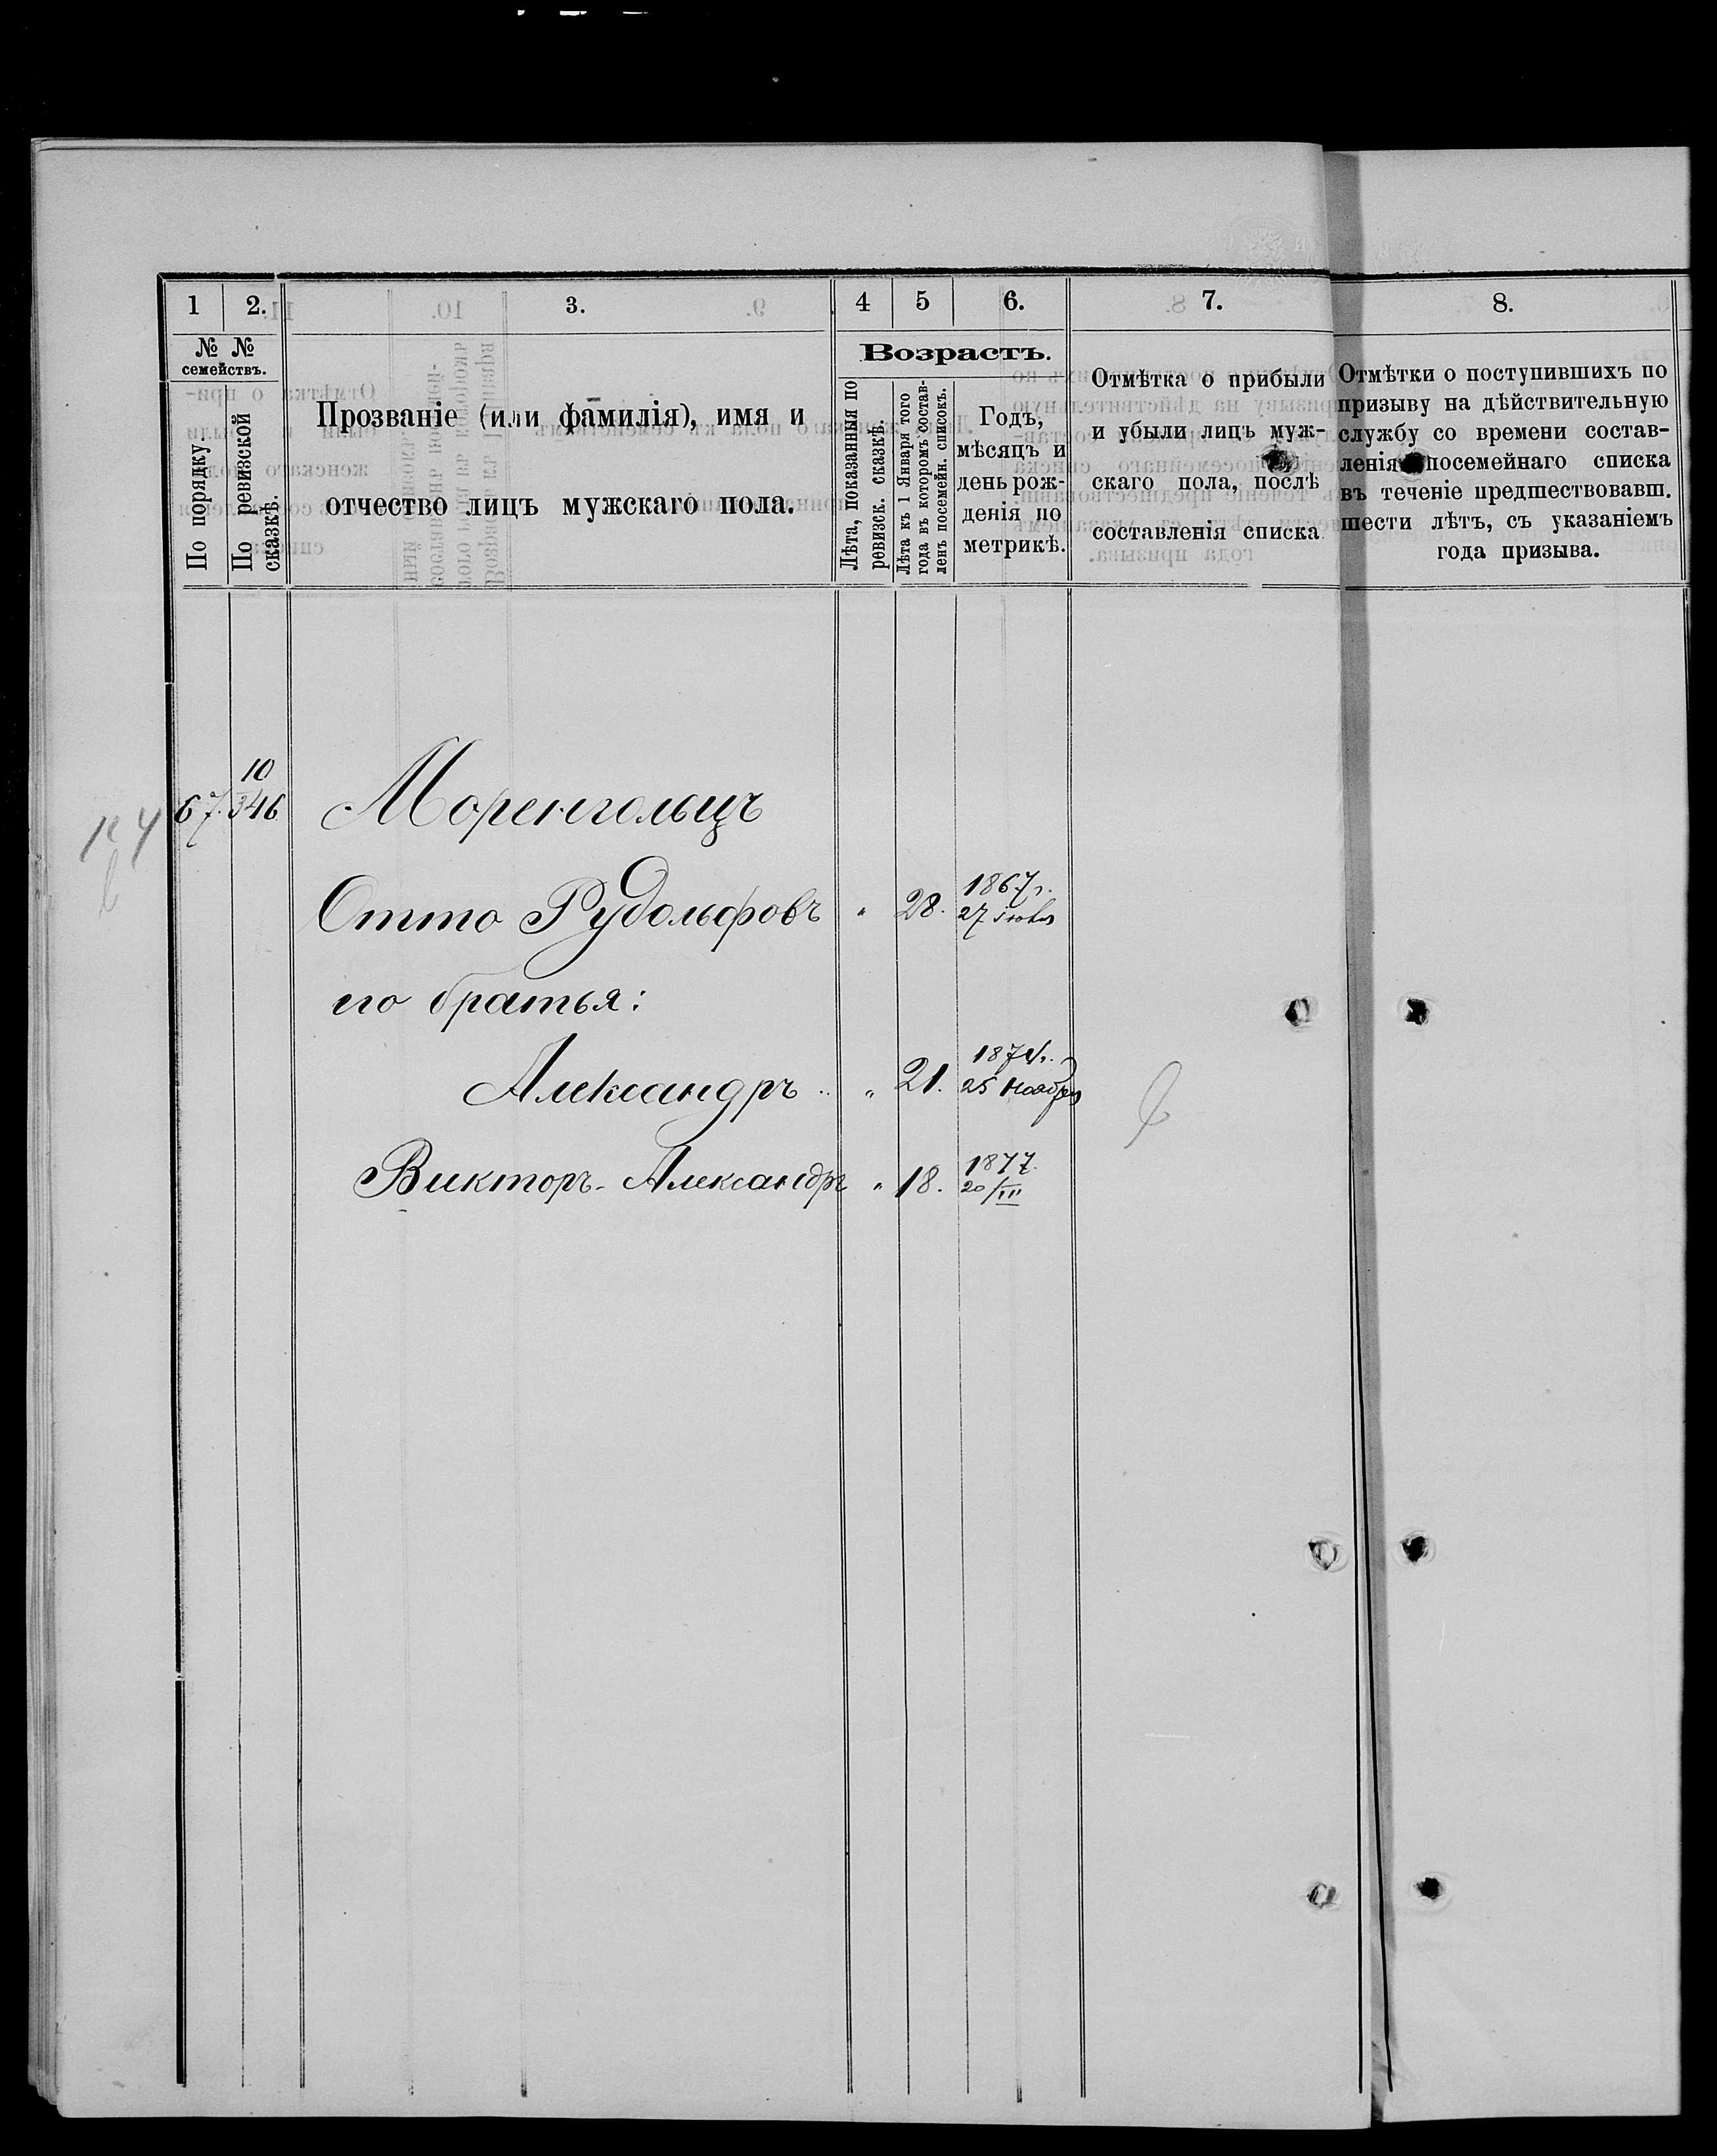 1 2. 3. 4 5 6. 7. 8.
№ № семействъ.
По порядку.
По ревизской сказкѣ.
Прозваніе (или фамилія), имя и
отчество лицъ мужскаго пола.
Возрастъ.
Лѣта, показанныя по
ревизск. сказкѣ.
Лѣта къ 1 Января того
года въ которомъ состав-
ленъ посемейн. списокъ.
Годъ,
мѣсяцъ и
день рож-
денія по
метрикѣ.
Отмѣтка о прибыли
и убыли лицъ муж-
скаго пола, послѣ
составленія списка
Отмѣтки о поступившихъ по
призыву на дѣйствительную
службу со времени состав-
ленія посемейнаго списка
въ теченіе предшествовавш.
шести лѣтъ, съ указаніемъ
года призыва.
10
67. 346 Моренгольцъ
1867 г.
Отто Рудольфовъ " 28. 27 Іюля
его братья:
1874 г.
Александръ " 21. 25 Ноября
1877.
Викторъ-Александръ " 18. 20/III